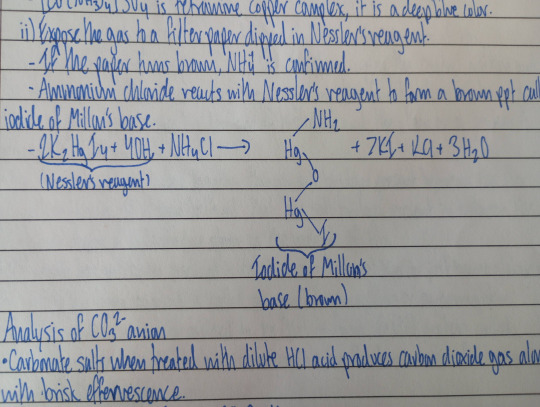 [Cu(NH3)4]SO4 is tetrammine copper complex, it is a deep blue color.
ii) Expose the gas to a filter paper dipped in Nessler's reagent.
- If the paper turns brown, NH4+ is confirmed.
- Ammonium chloride reacts with Nessler's reagent to form a brown ppt call
iodide of Millon's base.
- 2K2HgI4 + 4OH + NH4Cl → + 7KI + KCl + 3H2O
(Nessler's reagent)
NH2
Hg
O
Hg
I
Iodide of Millon's
base (brown)
Analysis of CO3^2- anion
• Carbonate salts when treated with dilute HCl acid produces carbon dioxide gas alon
with brisk effervescence.